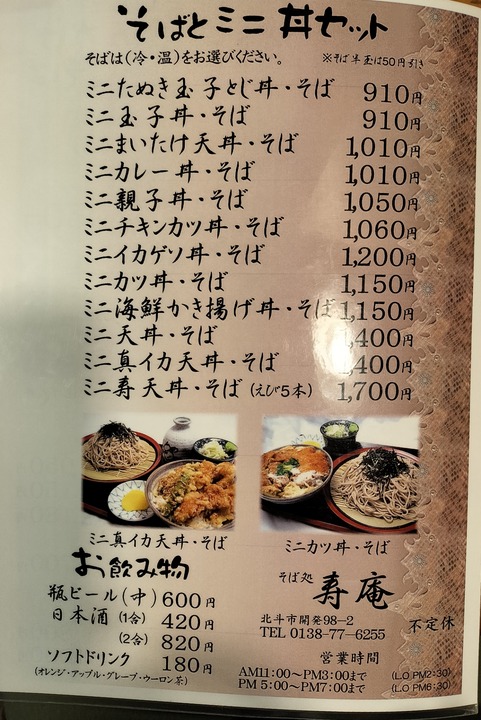 そばとミニ丼セット
そばは(冷・温)をお選びください。
※そば半玉は50円引き
ミニたぬき玉子とじ丼・そば 910円
ミニ玉子丼・そば 910円
ミニまいたけ天丼・そば 1,010円
ミニカレー丼・そば 1,010円
ミニ親子丼・そば 1,050円
ミニチキンカツ丼・そば 1,060円
ミニイカゲソ丼・そば 1,200円
ミニカツ丼・そば 1,150円
ミニ海鮮かき揚げ丼・そば 1,150円
ミニ天丼・そば 1,400円
ミニ真イカ天丼・そば 1,400円
ミニ寿天丼・そば (えび5本) 1,700円
ミニ真イカ天丼・そば
ミニカツ丼・そば
お飲み物
瓶ビール(中) 600円
日本酒 (1合) 420円
(2合) 820円
ソフトドリンク 180円
(オレンジ・アップル・グレープ・ウーロン茶)
そば処 寿庵
北斗市開発98-2
TEL 0138-77-6255
不定休
営業時間
AM11:00~PM3:00まで (LO PM2:30)
PM 5:00~PM7:00まで (LO PM6:30)